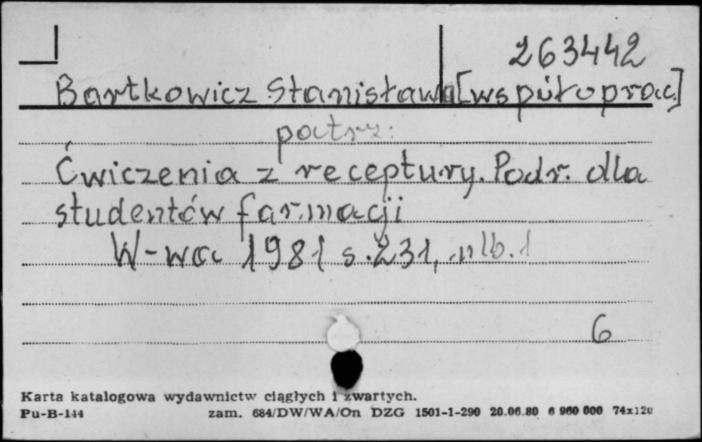 263442
Bartkowicz Stanisława [współoprac]
patrz:
Ćwiczenia z receptury. Podr. dla
studentów farmacji
W-wa 1981 s. 231, nlb. 1
6
Karta katalogowa wydawnictw ciągłych i zwartych.
Pu-B-144 zam. 684/DW/WA/On DZG 1501-1-290 20.06.80 6 960 000 74x120